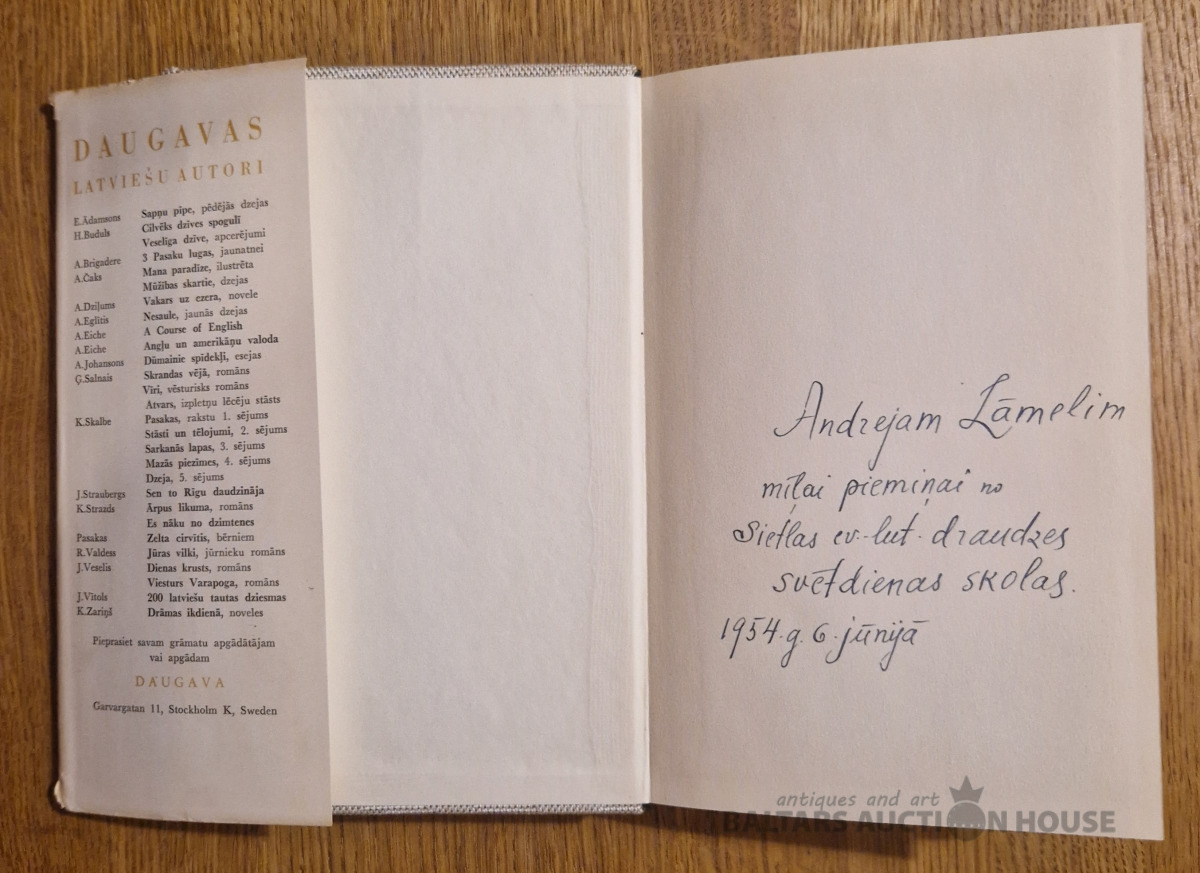 DAUGAVAS
LATVIEŠU AUTORI
E.Ādamsons Sapņu pīpe, pēdējās dzejas
H.Buduls Cilvēks dzīves spogulī
Veselīga dzīve, apcerējumi
A.Brigadere 3 Pasaku lugas, jaunatnei
A.Čaks Mana paradīze, ilustrēta
Mūžības skartie, dzejas
A.Dziļums Vakars uz ezera, novele
A.Eglītis Nesaule, jaunās dzejas
A.Eiche A Course of English
A.Eiche Angļu un amerikāņu valoda
A.Johansons Dūmainie spīdekļi, esejas
Ģ.Salnais Skrandas vējā, romāns
Vīri, vēsturisks romāns
Atvars, izpletņu lēcēju stāsts
K.Skalbe Pasakas, rakstu 1. sējums
Stāsti un tēlojumi, 2. sējums
Sarkanās lapas, 3. sējums
Mazās piezīmes, 4. sējums
Dzeja, 5. sējums
J.Straubergs Sen to Rīgu daudzināja
K.Strazds Ārpus likuma, romāns
Es nāku no dzimtenes
Pasakas Zelta cirvītis, bērniem
R.Valdess Jūras vilki, jūrnieku romāns
J.Veselis Dienas krusts, romāns
Viesturs Varapoga, romāns
J.Vītols 200 latviešu tautas dziesmas
K.Zariņš Drāmas ikdienā, noveles
Pieprasiet savam grāmatu apgādātājam
vai apgādam
DAUGAVA
Garvargatan 11, Stockholm K, Sweden
Andrejam Lāmelim
mīļai piemiņai no
Sietlas ev.-lut. draudzes
svētdienas skolas.
1954.g. 6. jūnijā
antiques and art
BALTARS AUCTION HOUSE